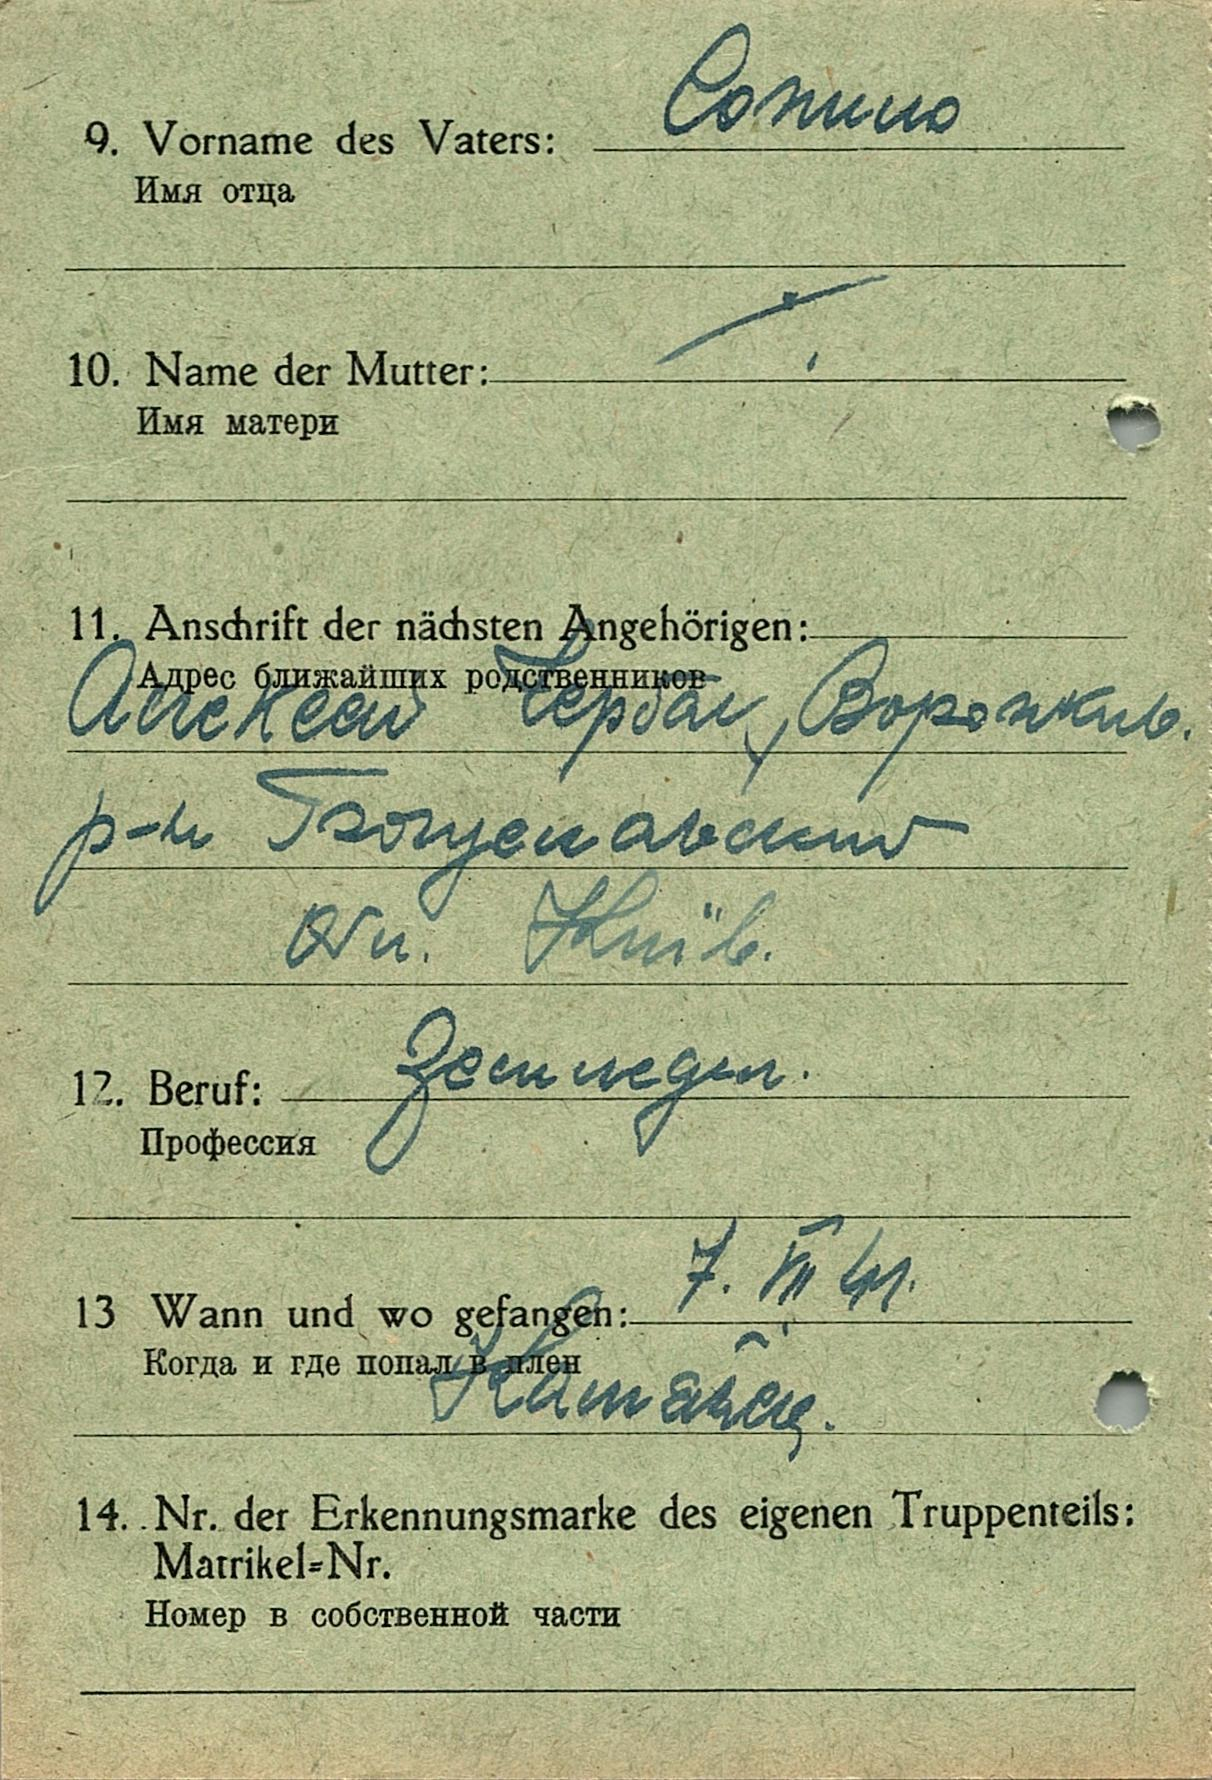 9. Vorname des Vaters:
Имя отца
10. Name der Mutter:
Имя матери
11. Anschrift der nächsten Angehörigen:
Адрес ближайших родственников
Алексей
р-н
Обл. Київ.
12. Beruf: Земледел.
Профессия
13 Wann und wo gefangen: 7. VIII 41.
Когда и где попал в плен
14. Nr. der Erkennungsmarke des eigenen Truppenteils:
Matrikel=Nr.
Номер в собственной части